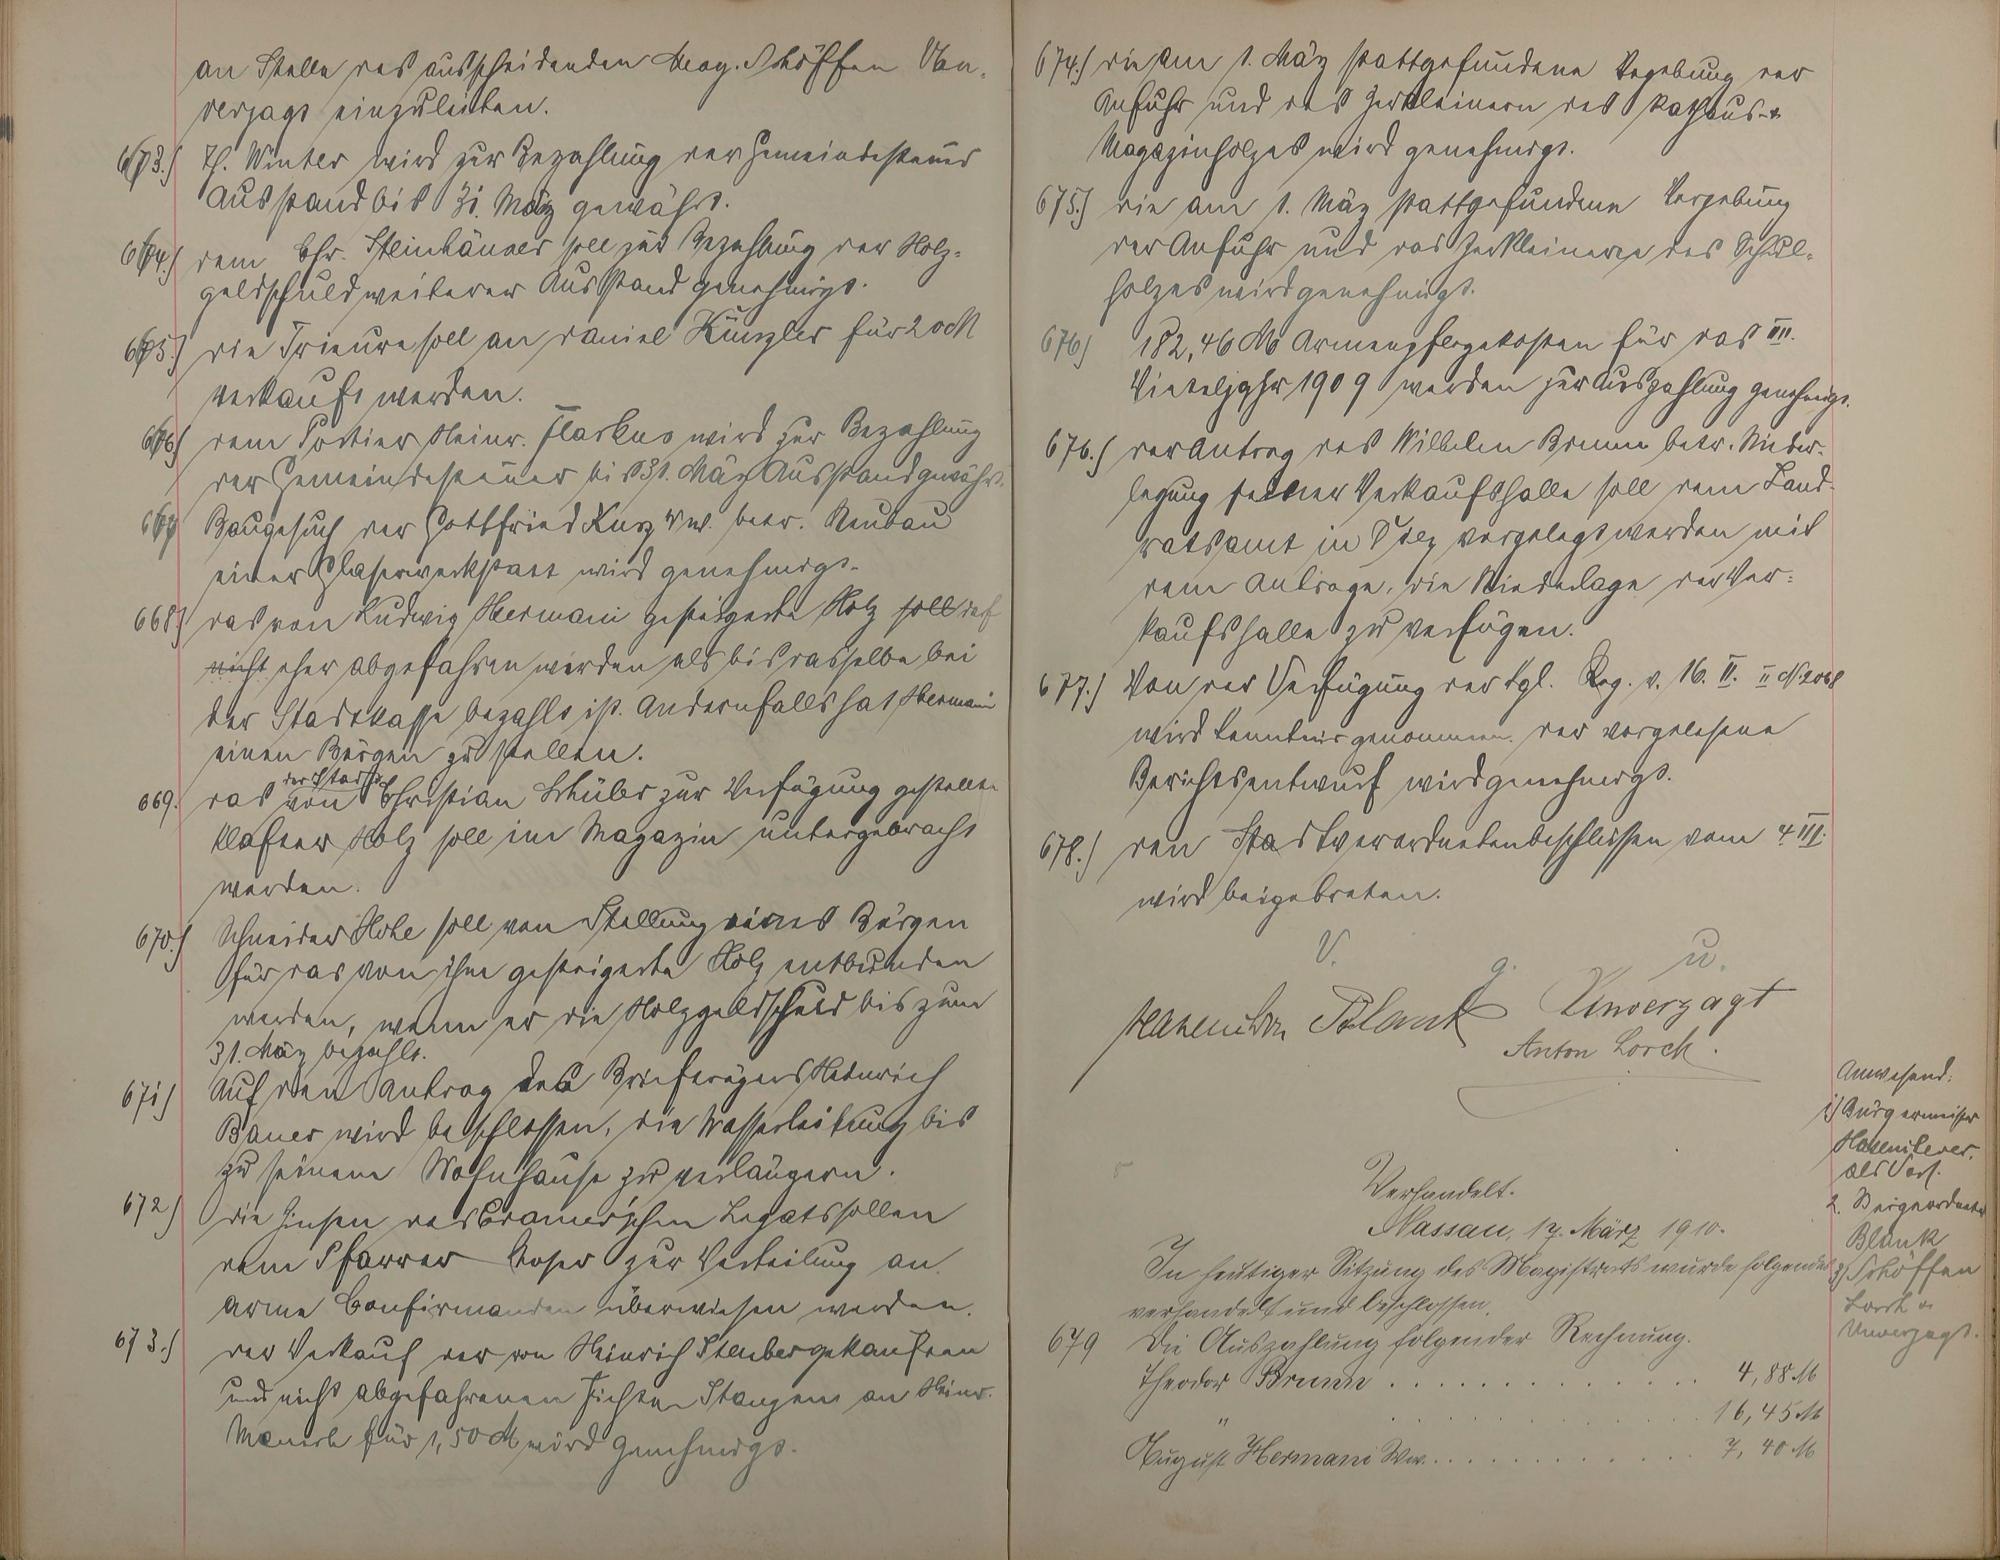 an Stelle des ausscheidenden Mag. Schöffen Un-
verzagt einzuleiten.
663.) Th. Winter wird zur Bezahlung der Gemeindesteuer
Ausstand bis 31. März gewährt.
664.) dem Chr. Steinhäuser soll zur Bezahlung der Holz-
geldschuld weiterer Ausstand genehmigt.
665.) die Trieure soll an Daniel Künzler für 20 M
verkauft werden.
666) dem Portier Heinr. Flarkus wird zur Bezahlung
der Gemeindesteuer bis 31. März Ausstand gewährt.
667 Baugesuch der Gottfried Kurz Ww. betr. Neubau
einer Glaserwerkstatt wird genehmigt.
668.) das von Ludwig Hermani gesteigerte Holz soll darf
nicht eher abgefahren werden als bis dasselbe bei
der Stadtkasse bezahlt ist. Andernfalls hat Hermani
einen Bürgen zu stellen.
der Stadt
669. das von Christian Schüler zur Verfügung gestellte
Klafter Holz soll im Magazin untergebracht
werden.
670.) Schneider Hohe soll von Stellung eines Bürgen
für das von ihm gesteigerte Holz entbunden
werden, wenn er die Holzgeldschuld bis zum
31. März bezahlt.
671) Auf den Antrag des Briefträgers Heinrich
Bauer wird beschlossen, die Wasserleitung bis
zu seinem Wohnhause zu verlängern.
672) die Zinsen des Cramer'schen Legats sollen
dem Pfarrer Moser zur Verteilung an
arme Confirmanden überwiesen werden.
673.) der Verkauf der von Heinrich Steuber gekauften
und nicht abgefahrenen Fichten Stangen an Heinr.
für 1,50 M wird genehmigt.
674.) die am 1. März stattgefundene Vergebung der
Anfuhr und des Zerkleinern des Rathaus- u
Magazinholzes wird genehmigt.
675.) die am 1. März stattgefundene Vergebung
der Anfuhr und das Zerkleinern des Schul-
holzes wird genehmigt.
676) 182,46 M Armenpflegekosten für das III.
Vierteljahr 1909 werden zur Auszahlung genehmigt.
676.) der Antrag des Wilhelm Brunn betr. Nieder-
legung seiner Verkaufshalle soll dem Land-
ratsamt in Diez vorgelegt werden mit
dem Antrage, die Niederlage der Ver-
kaufshalle zu verfügen.
677.) Von der Verfügung der Kgl. Reg. v. 16. II. II N. 2068
wird Kenntnis genommen. der vorgelesene
Berichtsentwurf wird genehmigt.
678.) den Stadtverordnetenbeschlüssen vom 4 III.
wird beigetreten.
V. g. u.
Hasenclever Blank Unverzagt
Anton Lorch.
Anwesend:
1) Bürgermeister
Hasenclever.
als Vors.
2. Beigeordneter
Blank
3) Schöffen
Lorch u
Unverzagt.
Verhandelt.
Nassau, 17. März 1910.
In heutiger Sitzung des Magistrats wurde folgendes
verhandelt und beschlossen.
679 Die Auszahlung folgender Rechnung.
Theodor Brunn . . . . . . . . . . . . 4,88 M
" . . . . . . . . . . . . 16,45 M
August Hermani Ww. . . . . . . . . . . . 7,40 M